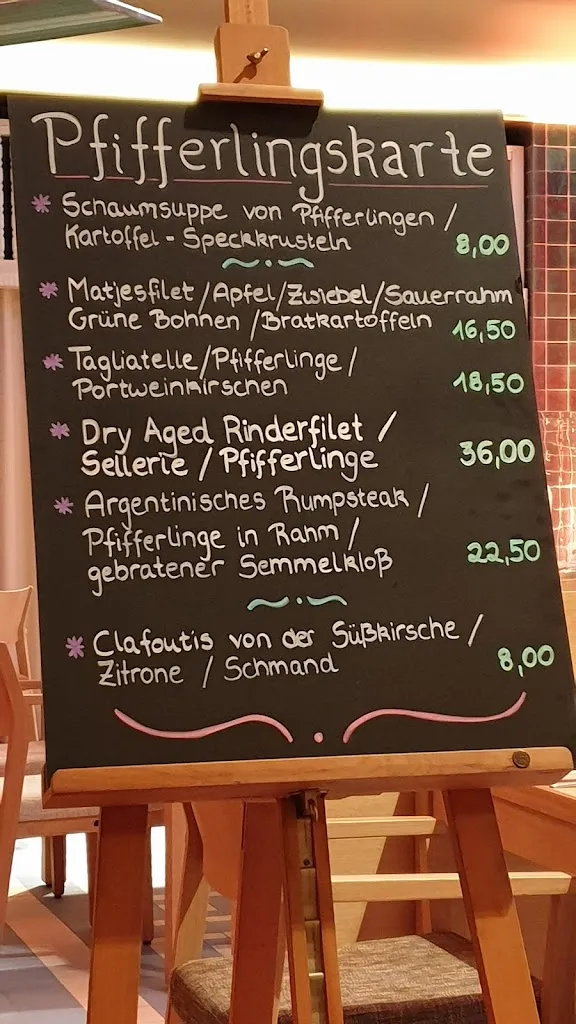 Pfifferlingskarte
* Schaumsuppe von Pfifferlingen /
Kartoffel - Speckkrusteln 8,00
* Matjesfilet / Apfel / Zwiebel / Sauerrahm
Grüne Bohnen / Bratkartoffeln 16,50
* Tagliatelle / Pfifferlinge /
Portweinkirschen 18,50
* Dry Aged Rinderfilet /
Sellerie / Pfifferlinge 36,00
* Argentinisches Rumpsteak /
Pfifferlinge in Rahm /
gebratener Semmelkloß 22,50
* Clafoutis von der Süßkirsche /
Zitrone / Schmand 8,00